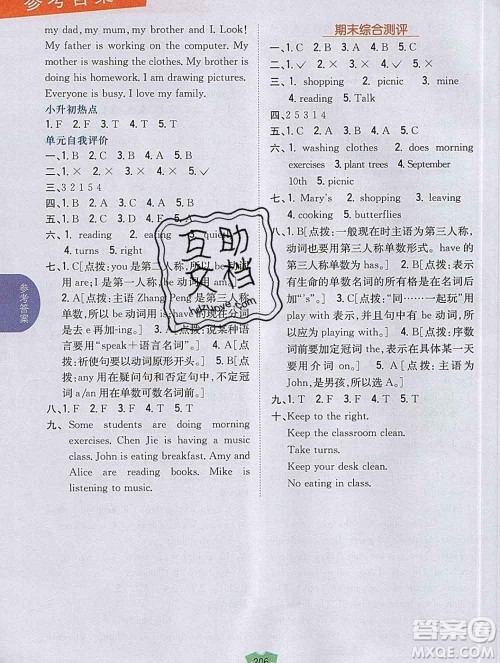 参考答案
my dad, my mum, my brother and I. Look!
My father is working on the computer. My
mother is washing the clothes. My brother is
doing his homework. I am drawing pictures.
Everyone is busy. I love my family.
小升初热点
1. F 2. F 3. T 4. F 5. T
单元自我评价
一、1. B 2. C 3. A 4. B 5. B
二、1. 2. 3. 4. 5.
三、3 2 1 5 4
四、1. D 2. B 3. A 4. C 5.
五、1. reading 2. eating 3. quiet
4. turns 5. right
七、1. C[点拨：you是第二人称，所以be动词
用are；I是第一人称，所以be动词用
am。] 2. A[点拨：主语Zhang Peng是第
三人称单数，所以be动词用is，have的现在分词
是去e再加-ing。] 3. C[点拨：说某种语
言要用“speak＋语言名词”。] 4. B[点
拨：祈使句要以动词原形开头。] 5. C[点
拨：any用在疑问句和否定句中，不定冠
词a/an用在单数可数名词前。]
八、1. C 2. A 3. B 4. B 5. C
九、Some students are doing morning
exercises. Chen Jie is having a music
class. John is eating breakfast. Amy and
Alice are reading books. Mike is
listening to music.
期末综合测评
一、1. C 2. C 3. B 4. C 5. A
二、1. ✓ 2. 3. 4. 5. ✓
三、1. shopping 2. picnic 3. mine
4. reading 5. Talk
四、2 5 3 1 4
五、1. 2. 3. 4. 5.
六、1. washing clothes 2. does morning
exercises 3. plant trees 4. September
10th 5. picnic
七、1. Mary's 2. shopping 3. leaving
4. cooking 5. butterflies
八、1. B[点拨：一般现在时主语为第三人称单
数，动词也要用第三人称单数形式。have的
第三人称单数形式是has。] 2. A[点拨：表示
有生命的名词所有格的构成是在名词后面
加“'s”。] 3. C[点拨：“同……一起玩”用
play with来表示。] 4. B[点拨：序数词
前要加定冠词the。表示在具体某一天
要用介词on。] 5. A[点拨：主语为
John，是男孩，所以选A。]
九、1. T 2. F 3. T 4. F 5. T
十、Keep to the right.
Keep the classroom clean.
Take turns.
Keep your desk clean.
No eating in class.
参考答案
互助文档
206
答案圈
MXQE.COM